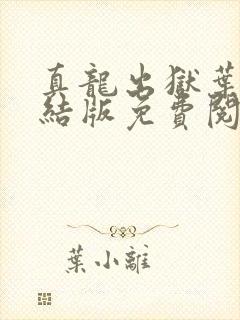 真龍出獄葉
結版免費閱
葉小離